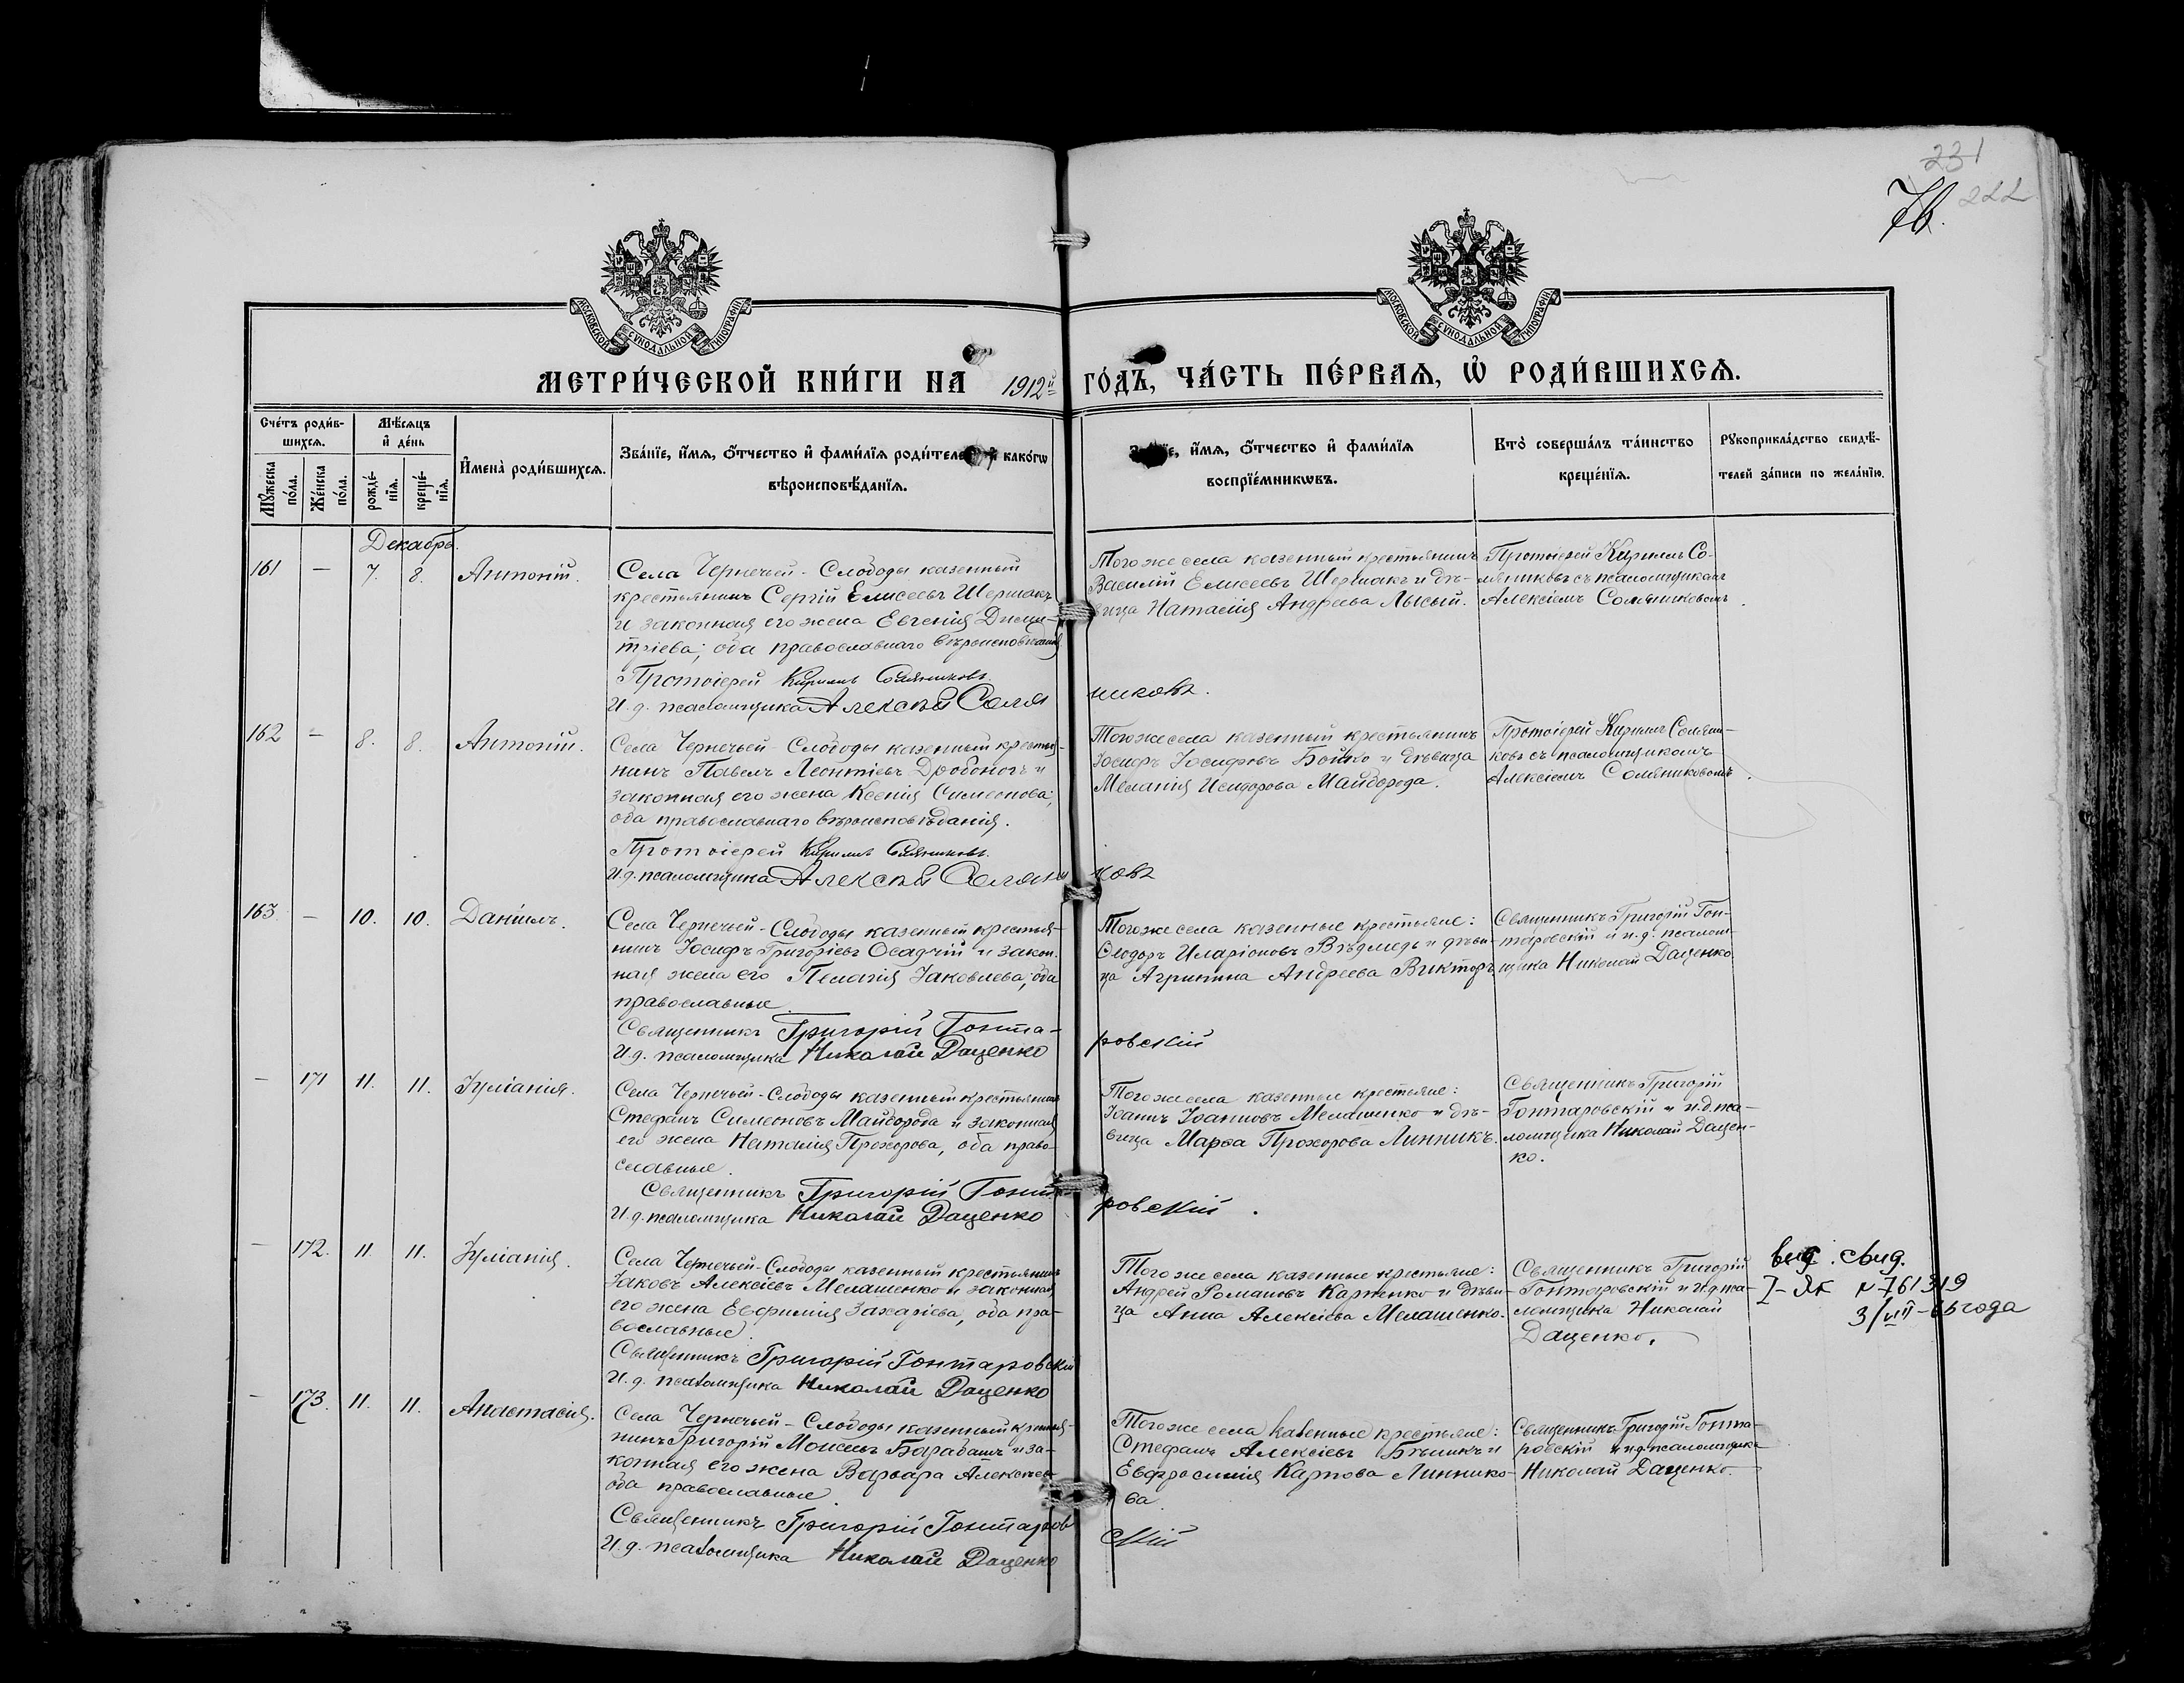 231
222
76.
МОСКОВСКОЙ СѴНОДАЛЬНОЙ ТИПОГРАФІИ
МОСКОВСКОЙ СѴНОДАЛЬНОЙ ТИПОГРАФІИ
МЕТРИ́ЧЕСКОЙ КНИ́ГИ НА 1912й ГО́ДЪ, ЧА́СТЬ ПЕ́РВАЯ, Ѡ҆ РОДИ́ВШИХСѦ.
Сче́тъ роди́в-
шихсѧ.
Мꙋ́жеска по́ла.
Же́нска по́ла.
Мѣ́сѧцъ
и҆ де́нь
рожде́-
нїѧ.
креще́-
нїѧ.
И҆мена̀ роди́вшихсѧ.
Зва́нїе, и҆́мѧ, о҆́тчество и҆ фами́лїѧ роди́теле и҆ како́гѡ
вѣроисповѣ́данїѧ.
и҆́мѧ, о҆́тчество и҆ фами́лїѧ
воспрїе́мникѡвъ.
Кто̀ соверша́лъ та́инство
креще́нїѧ.
Рꙋкоприкла́дство свидѣ́-
телей за́писи по жела́нїю.
Декабрь.
161 — 7. 8. Антоній.
Села Чернечьей-Слободы казенный
крестьянинъ Сергій Елисеевъ Шершакъ
и законная его жена Евгенія Дими-
тріева; оба православнаго вѣроисповѣданія
Протоіерей Кириллъ Соляниковъ.
И. д. псаломщика Алексѣй Соля
никовъ.
Того же села казенный крестьянинъ
Василій Елисеевъ Шершакъ и дѣ-
вица Наталія Андреева Лысый.
Протоіерей Кириллъ Со-
ляниковъ съ псаломщикомъ
Алексіемъ Соляниковымъ.
162 — 8. 8. Антоній.
Села Чернечьей-Слободы казенный крестья-
нинъ Павелъ Леонтіевъ Дробоногъ и
законная его жена Ксенія Симеонова;
оба православнаго вѣроисповѣданія.
Протоіерей Кириллъ Соляниковъ.
И. д. псаломщика Алексѣй Соляни
ковъ
Того же села казенный крестьянинъ
Іосифъ Іосифовъ Бойко и дѣвица
Меланія Исидорова Майборода.
Протоіерей Кириллъ Соляни-
ковъ съ псаломщикомъ
Алексіемъ Соляниковымъ.
163 — 10. 10. Даніилъ.
Села Чернечьей-Слободы казенный крестья-
нинъ Іосифъ Григоріевъ Осадчій и закон-
ная жена его Пелагія Іаковлева; оба
православные.
Священникъ Григорій Гонта-
И. д. псаломщика Николай Даценко
ровскій
Того же села казенные крестьяне:
Ѳеодоръ Иларіоновъ Вѣдмедь и дѣви-
ца Агрипина Андреева Викторъ
Священникъ Григорій Гон-
таровскій и и. д. псалом-
щика Николай Даценко
— 171 11. 11. Іуліанія.
Села Чернечьей-Слободы казенный крестьянинъ
Стефанъ Симеоновъ Майборода и законная
его жена Наталія Прохорова, оба право-
славные.
Священникъ Григорій Гонта
И. д. псаломщика Николай Даценко
ровскій.
Того же села казенные крестьяне:
Іоаннъ Іоанновъ Мелашенко и дѣ-
вица Марѳа Прохорова Линникъ.
Священникъ Григорій
Гонтаровскій и и. д. пса-
ломщика Николай Дацен-
ко.
— 172. 11. 11. Іуліанія.
Села Чернечьей-Слободы казенный крестьянинъ
Іаковъ Алексіевъ Мелашенко и законная
его жена Евфимія Захаріева, оба пра-
вославные.
Священникъ Григорій Гонтаровскій
И. д. псаломщика Николай Даценко
Того же села казенные крестьяне:
Андрей Романовъ Карпенко и дѣви-
ца Анна Алексіева Мелашенко.
Священникъ Григорій
Гонтаровскій и и. д. пса-
ломщика Николай
Даценко.
выд. свид.
I-ЯК № 761319
3/VIII-65 года
— 173. 11. 11. Анастасія.
Села Чернечьей-Слободы казенный крестья-
нинъ Григорій Моисеевъ Барабашъ и за-
конная его жена Варвара Алексіева
оба православные.
Священникъ Григорій Гонтаров
И. д. псаломщика Николай Даценко
скій
Того же села казенные крестьяне:
Стефанъ Алексіевъ Бѣликъ и
Евфросинія Карпова Линнико-
ва.
Священникъ Григорій Гонта-
ровскій и и. д. псаломщика
Николай Даценко.